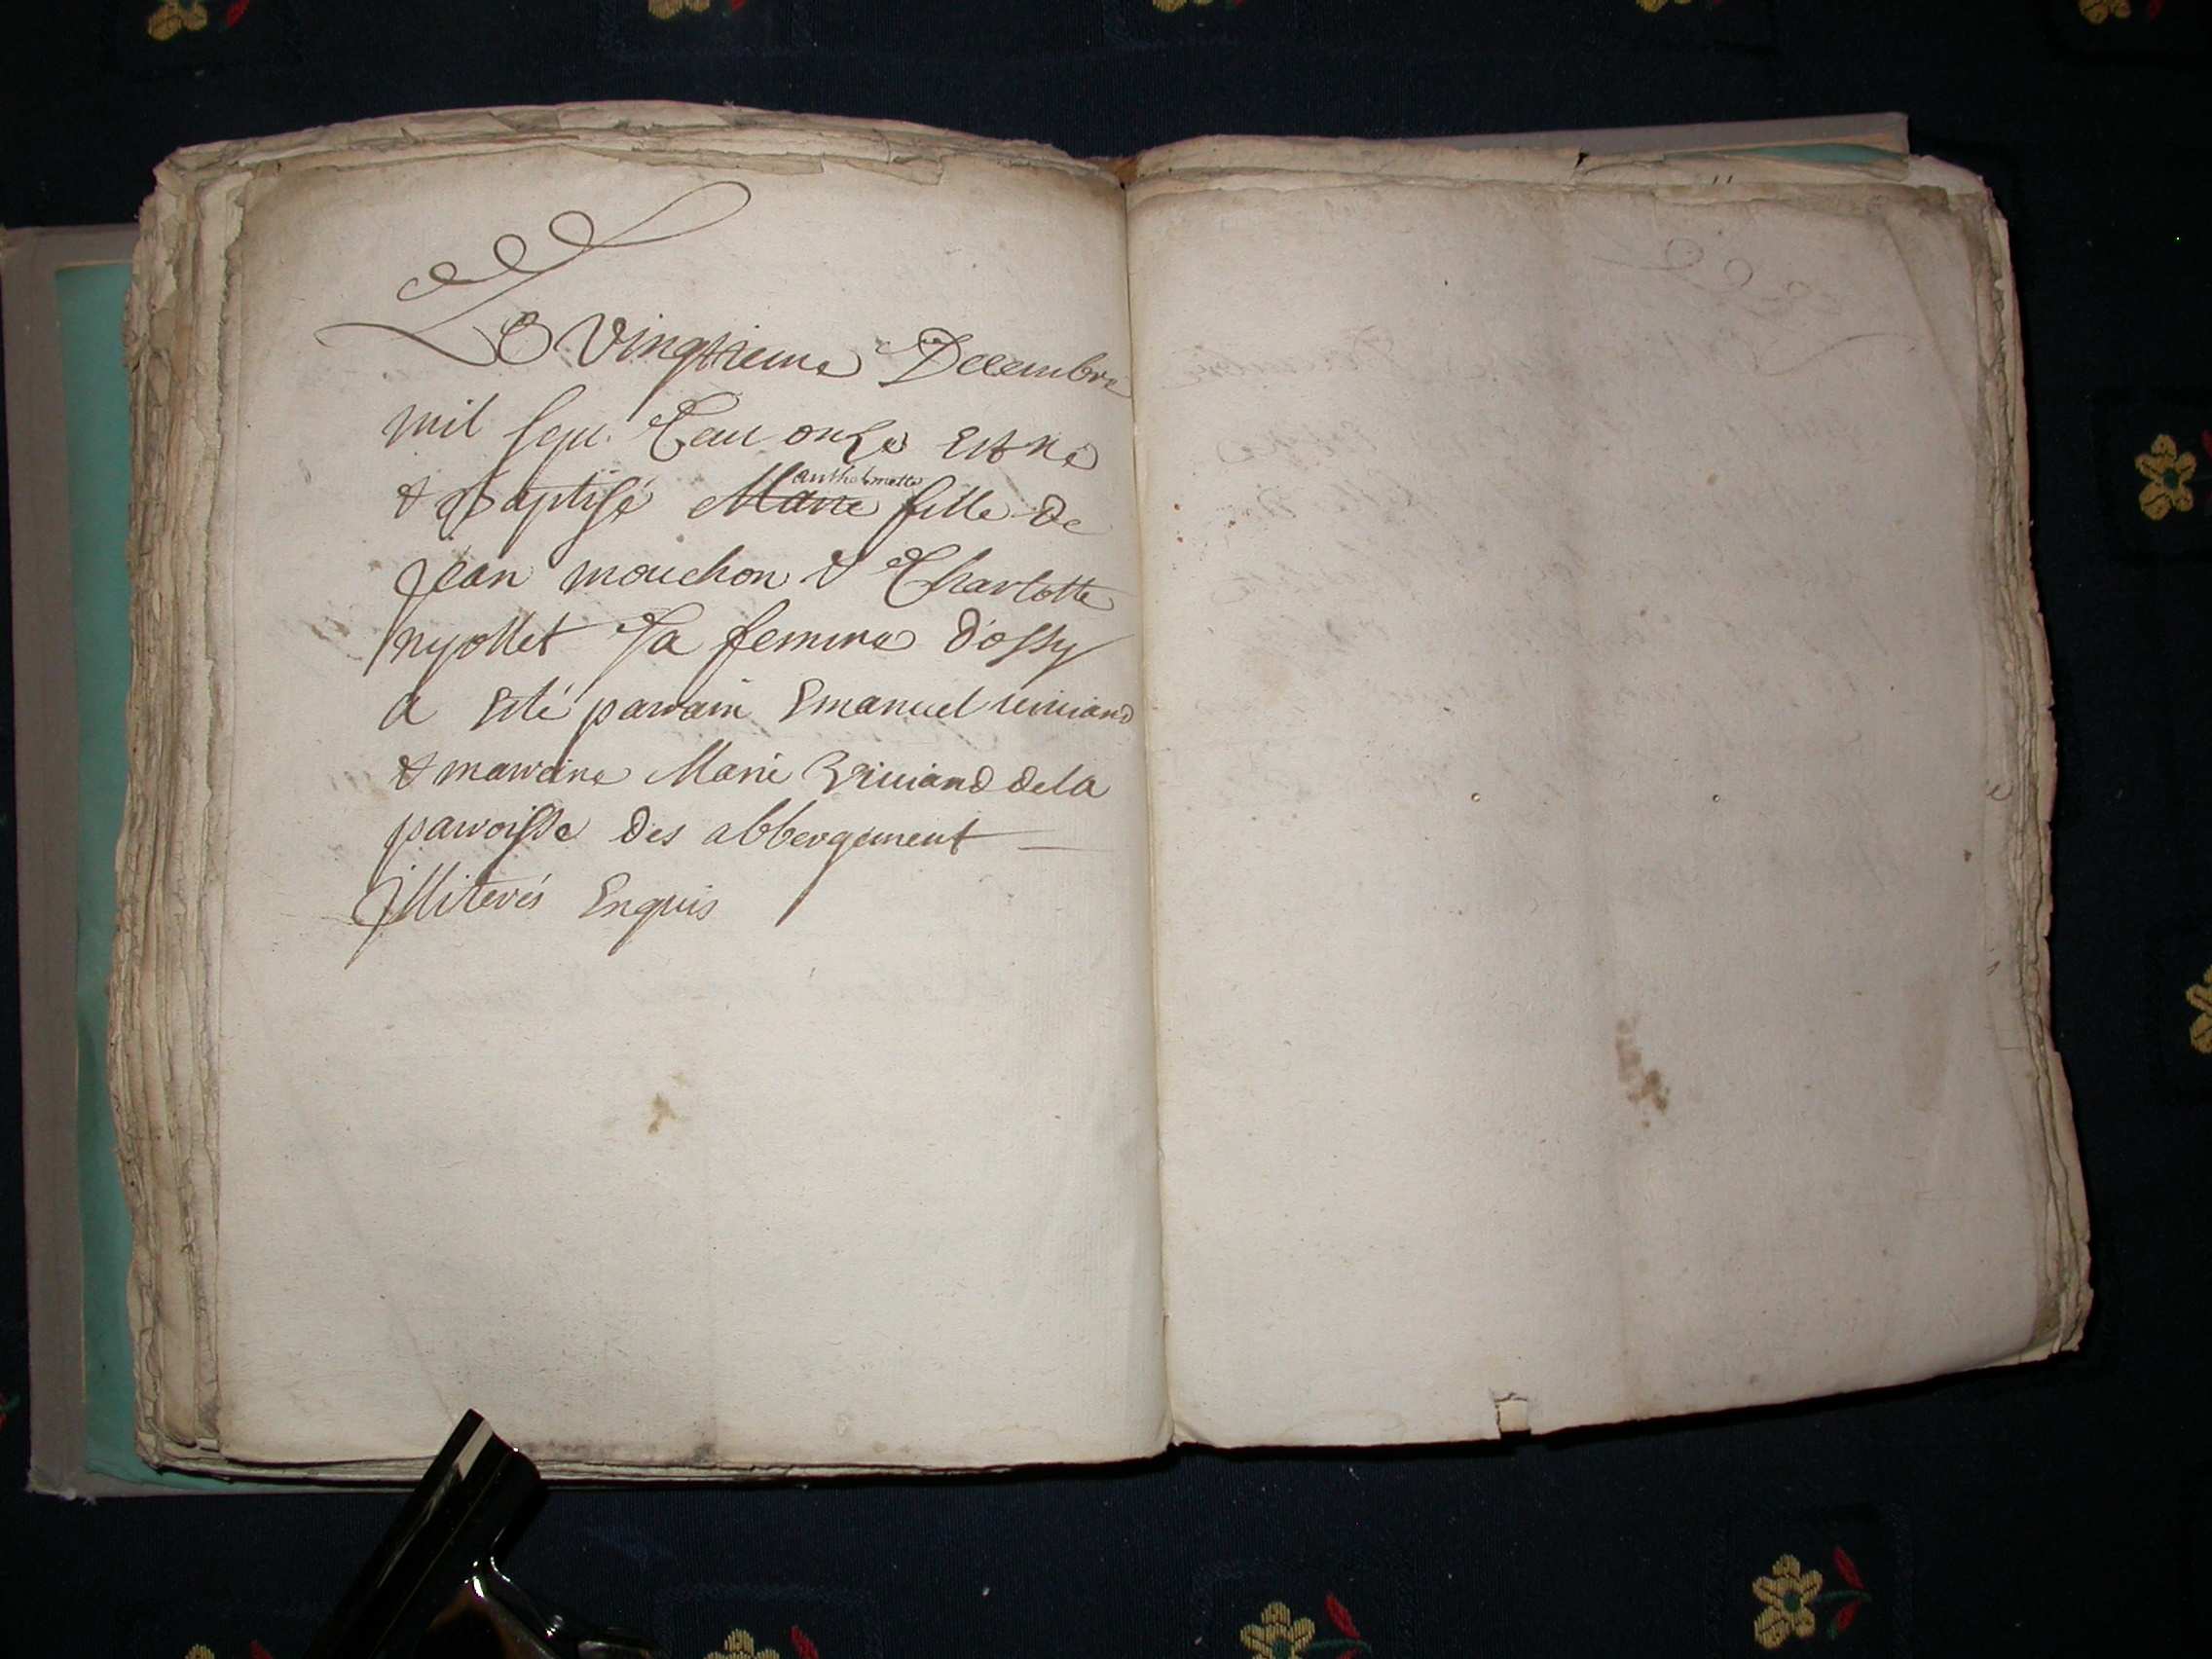 Le Vingtieme Decembre
mil sept Cent onze Est né
& Baptisé Marie anthelmette fille de
Jean mouchon & Charlotte
nyollet Sa femme d'ossy
a Esté parrain Emanuel
& marraine Marie de la
parroisse des abbergement
Illiterés Enquis